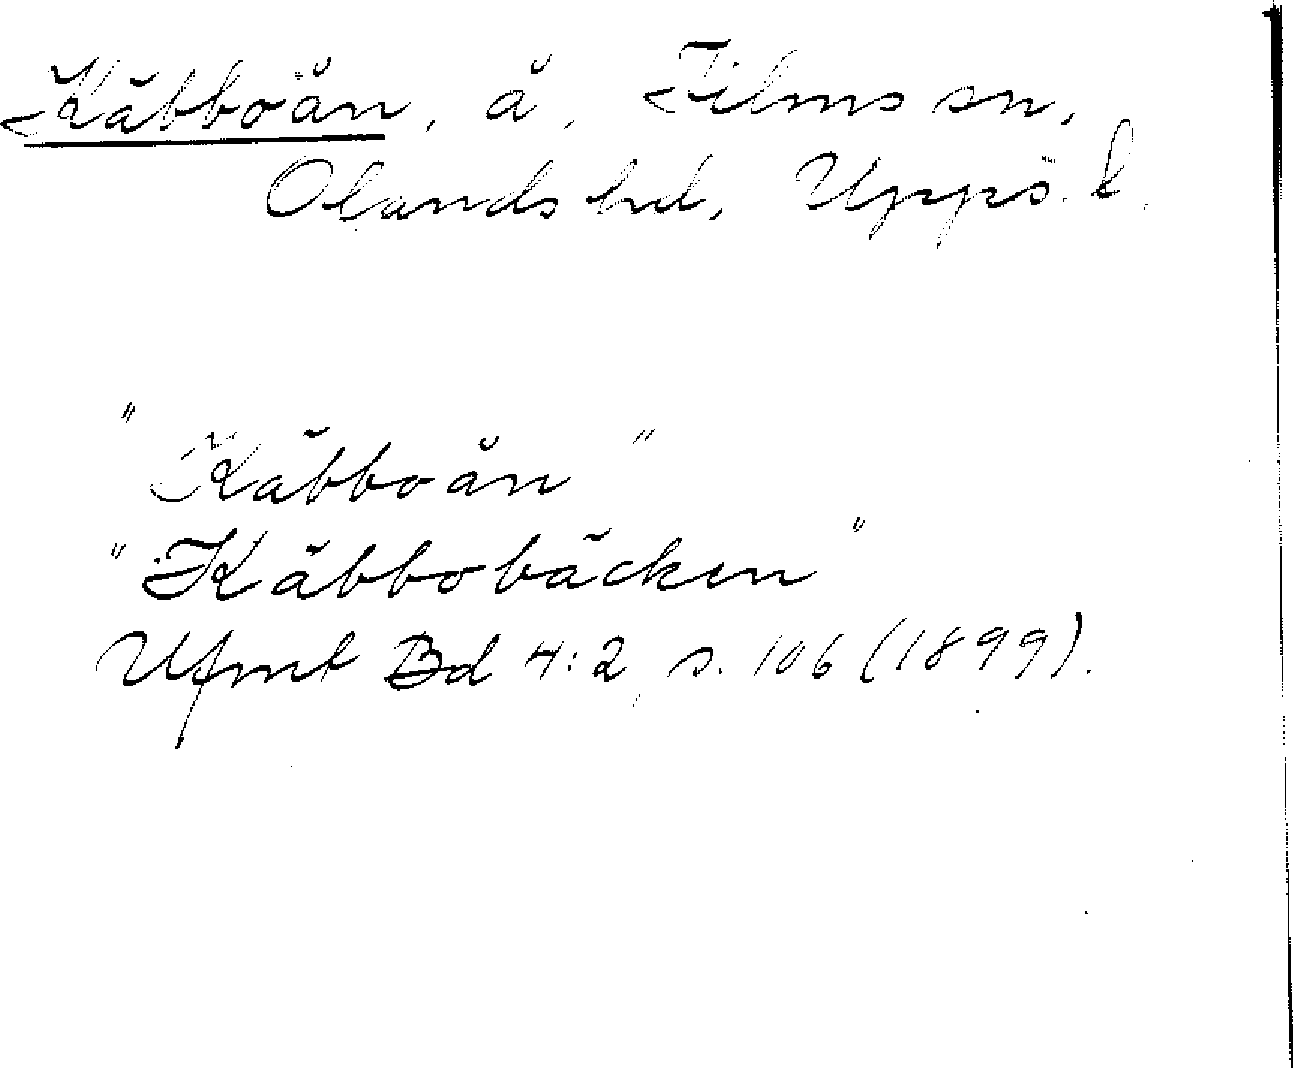 Käbboån, å, Films sn,
Olands hd, Upps. l.
"Käbboån"
"Käbbobäcken"
Ufmt Bd 4:2, s. 106 (1899).